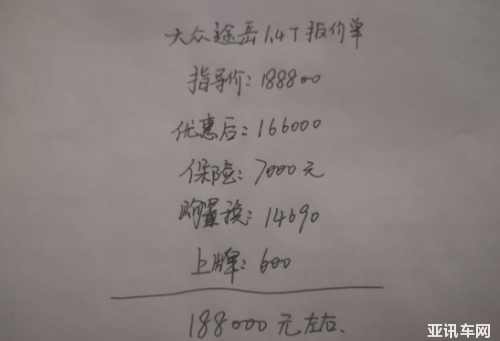 大众途岳1.4T报价单
指导价:188800
优惠后:166000
保险:7000元
购置税:14690
上牌:600
188000元左右.
亚讯车网